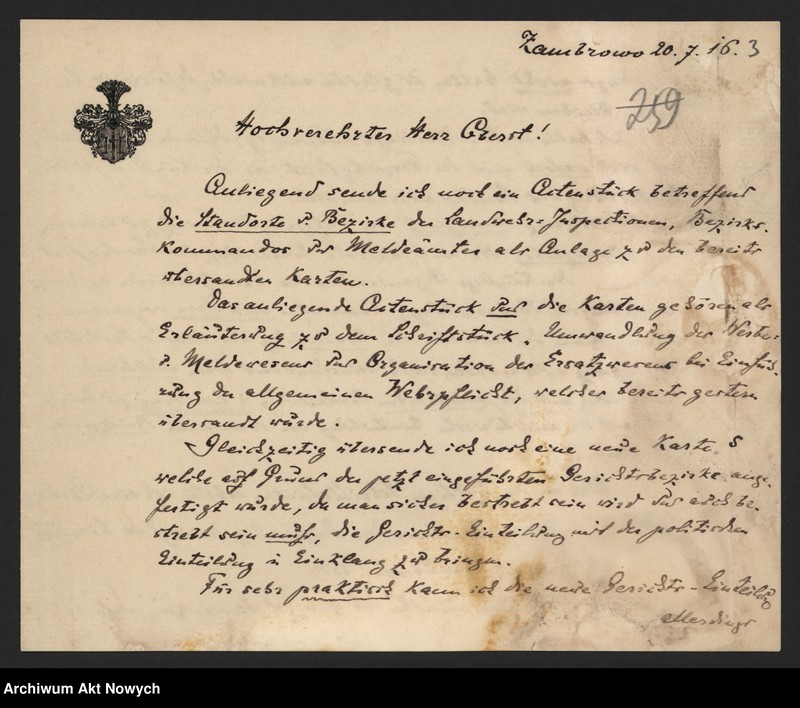 Zambrowo 20. 7. 16. 3
259
Hochverehrter Herr Oberst!
Anliegend sende ich noch ein Aktenstück betreffend
die Standorte u. Bezirke der Landwehr-Inspectionen, Bezirks-
kommandos und Meldeämter als Anlage zu den bereits
übersandten Karten.
Das anliegende Aktenstück und die Karten gehören als
Erläuterung zu dem Schriftstück. Umwandlung der Werbe-
u. Meldewesens und Organisation des Ersatzwesens bei Einfüh-
rung der allgemeinen Wehrpflicht, welches bereits gestern
übersandt wurde.
Gleichzeitig übersende ich noch eine neue Karte 5
welche auf Grund der jetzt eingeführten Gerichtsbezirke ange-
fertigt wurde, da man sicher bestrebt sein wird und auch be-
strebt sein muß, die Gerichts-Einteilung mit der politischen
Einteilung in Einklang zu bringen.
Für sehr praktisch kann ich die neue Gerichts-Einteilung
allerdings
Archiwum Akt Nowych